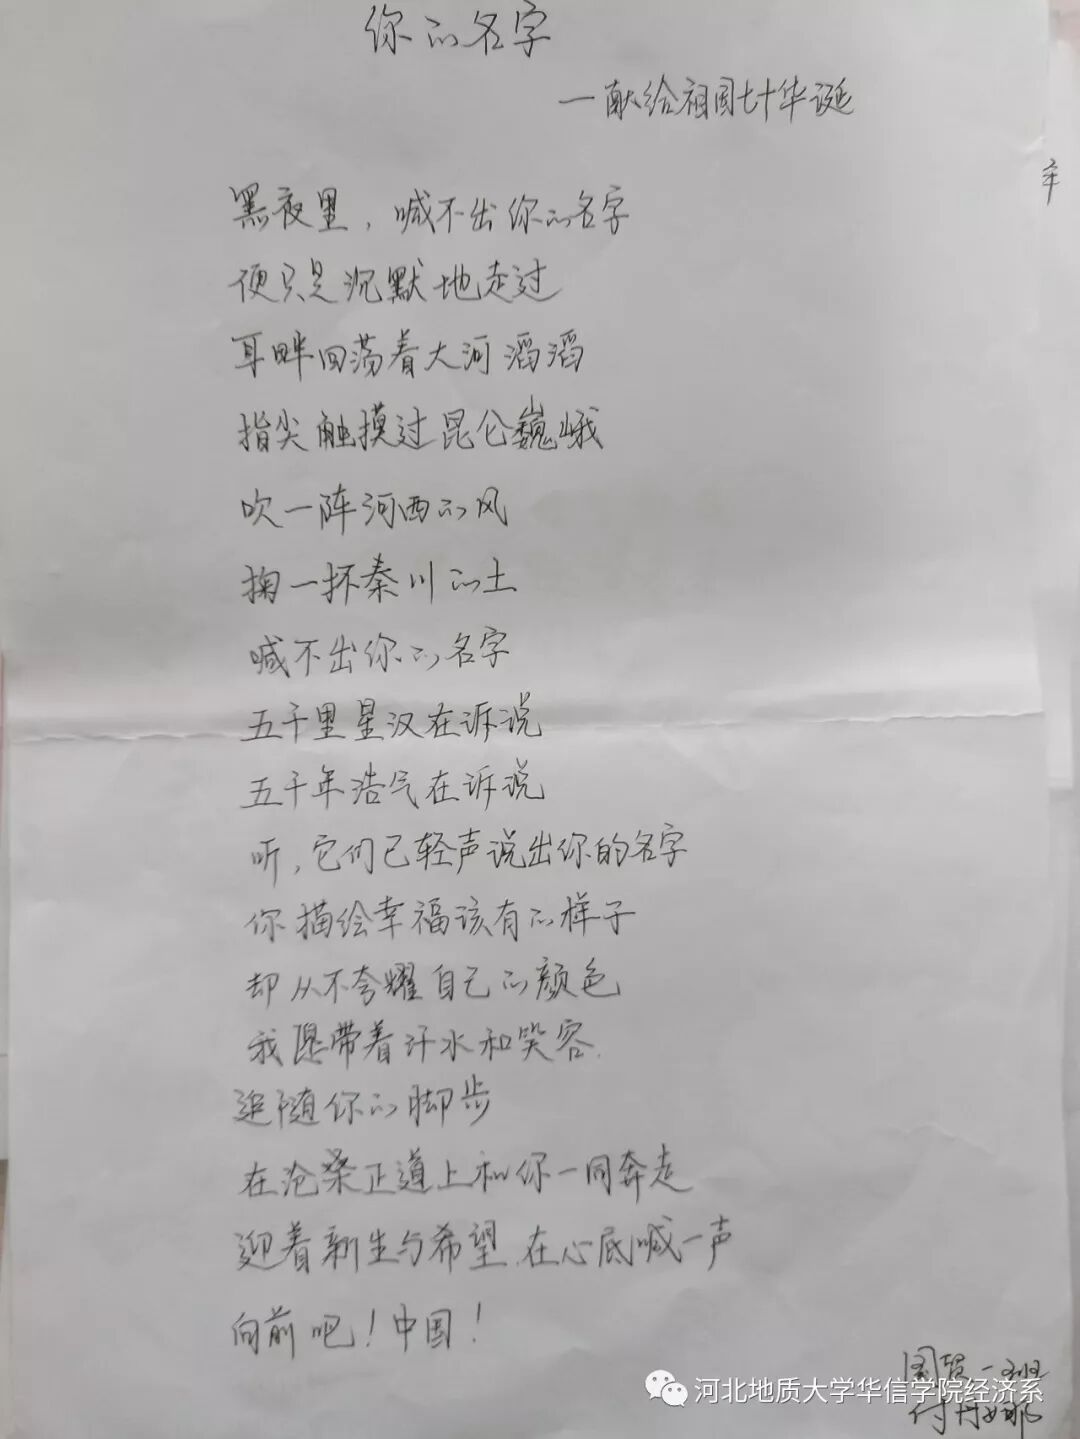 你的名字
一献给祖国七十华诞
黑夜里，喊不出你的名字
便只是沉默地走过
耳畔回荡着大河滔滔
指尖触摸过昆仑巍峨
吹一阵河西的风
掬一抔秦川的土
喊不出你的名字
五千里星汉在诉说
五千年浩气在诉说
听，它们已轻声说出你的名字
你描绘幸福该有的样子
却从不夸耀自己的颜色
我愿带着汗水和笑容.
追随你的脚步
在沧桑正道上和你一同奔走
迎着新生与希望.在心底喊一声
向前吧！中国！
国贸一班
河北地质大学华信学院经济系
付丹娜